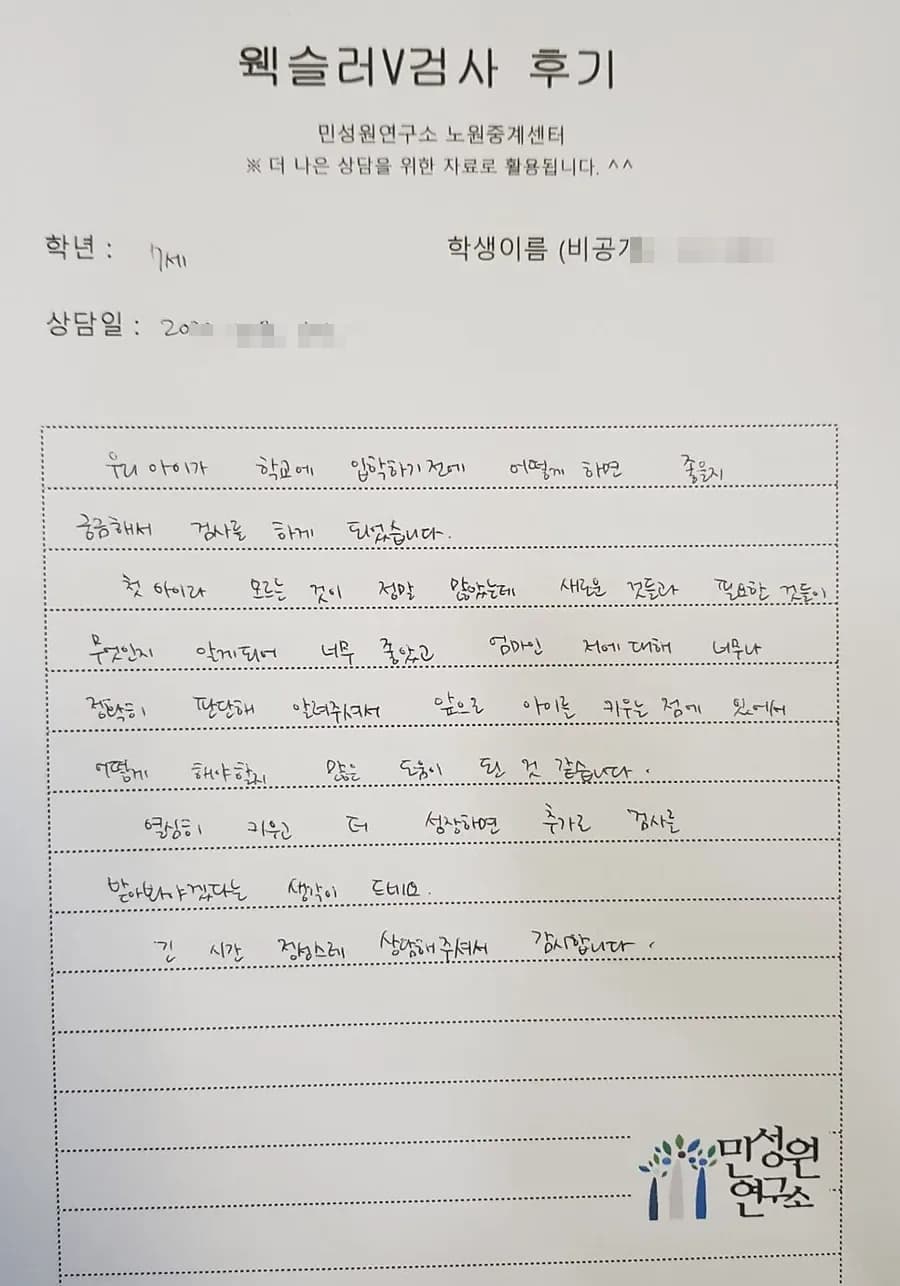 웩슬러V검사 후기
민성원연구소 노원중계센터
※ 더 나은 상담을 위한 자료로 활용됩니다. ^^
학년 : 7세
학생이름 (비공개
상담일 : 20
우리 아이가 학교에 입학하기전에 어떻게 하면 좋을지
궁금해서 검사를 하게 되었습니다.
첫 아이라 모르는 것이 정말 많았는데 새로운 것들과 필요한 것들이
무엇인지 알게되어 너무 좋았고 엄마인 저에 대해 너무나
정확히 판단해 알려주셔서 앞으로 아이를 키우는 점에 있어서
어떻게 해야할지 많은 도움이 된 것 같습니다.
열심히 키우고 더 성장하면 추가로 검사를
받아봐야겠다는 생각이 드네요.
긴 시간 정성스레 상담해주셔서 감사합니다.
민성원
연구소